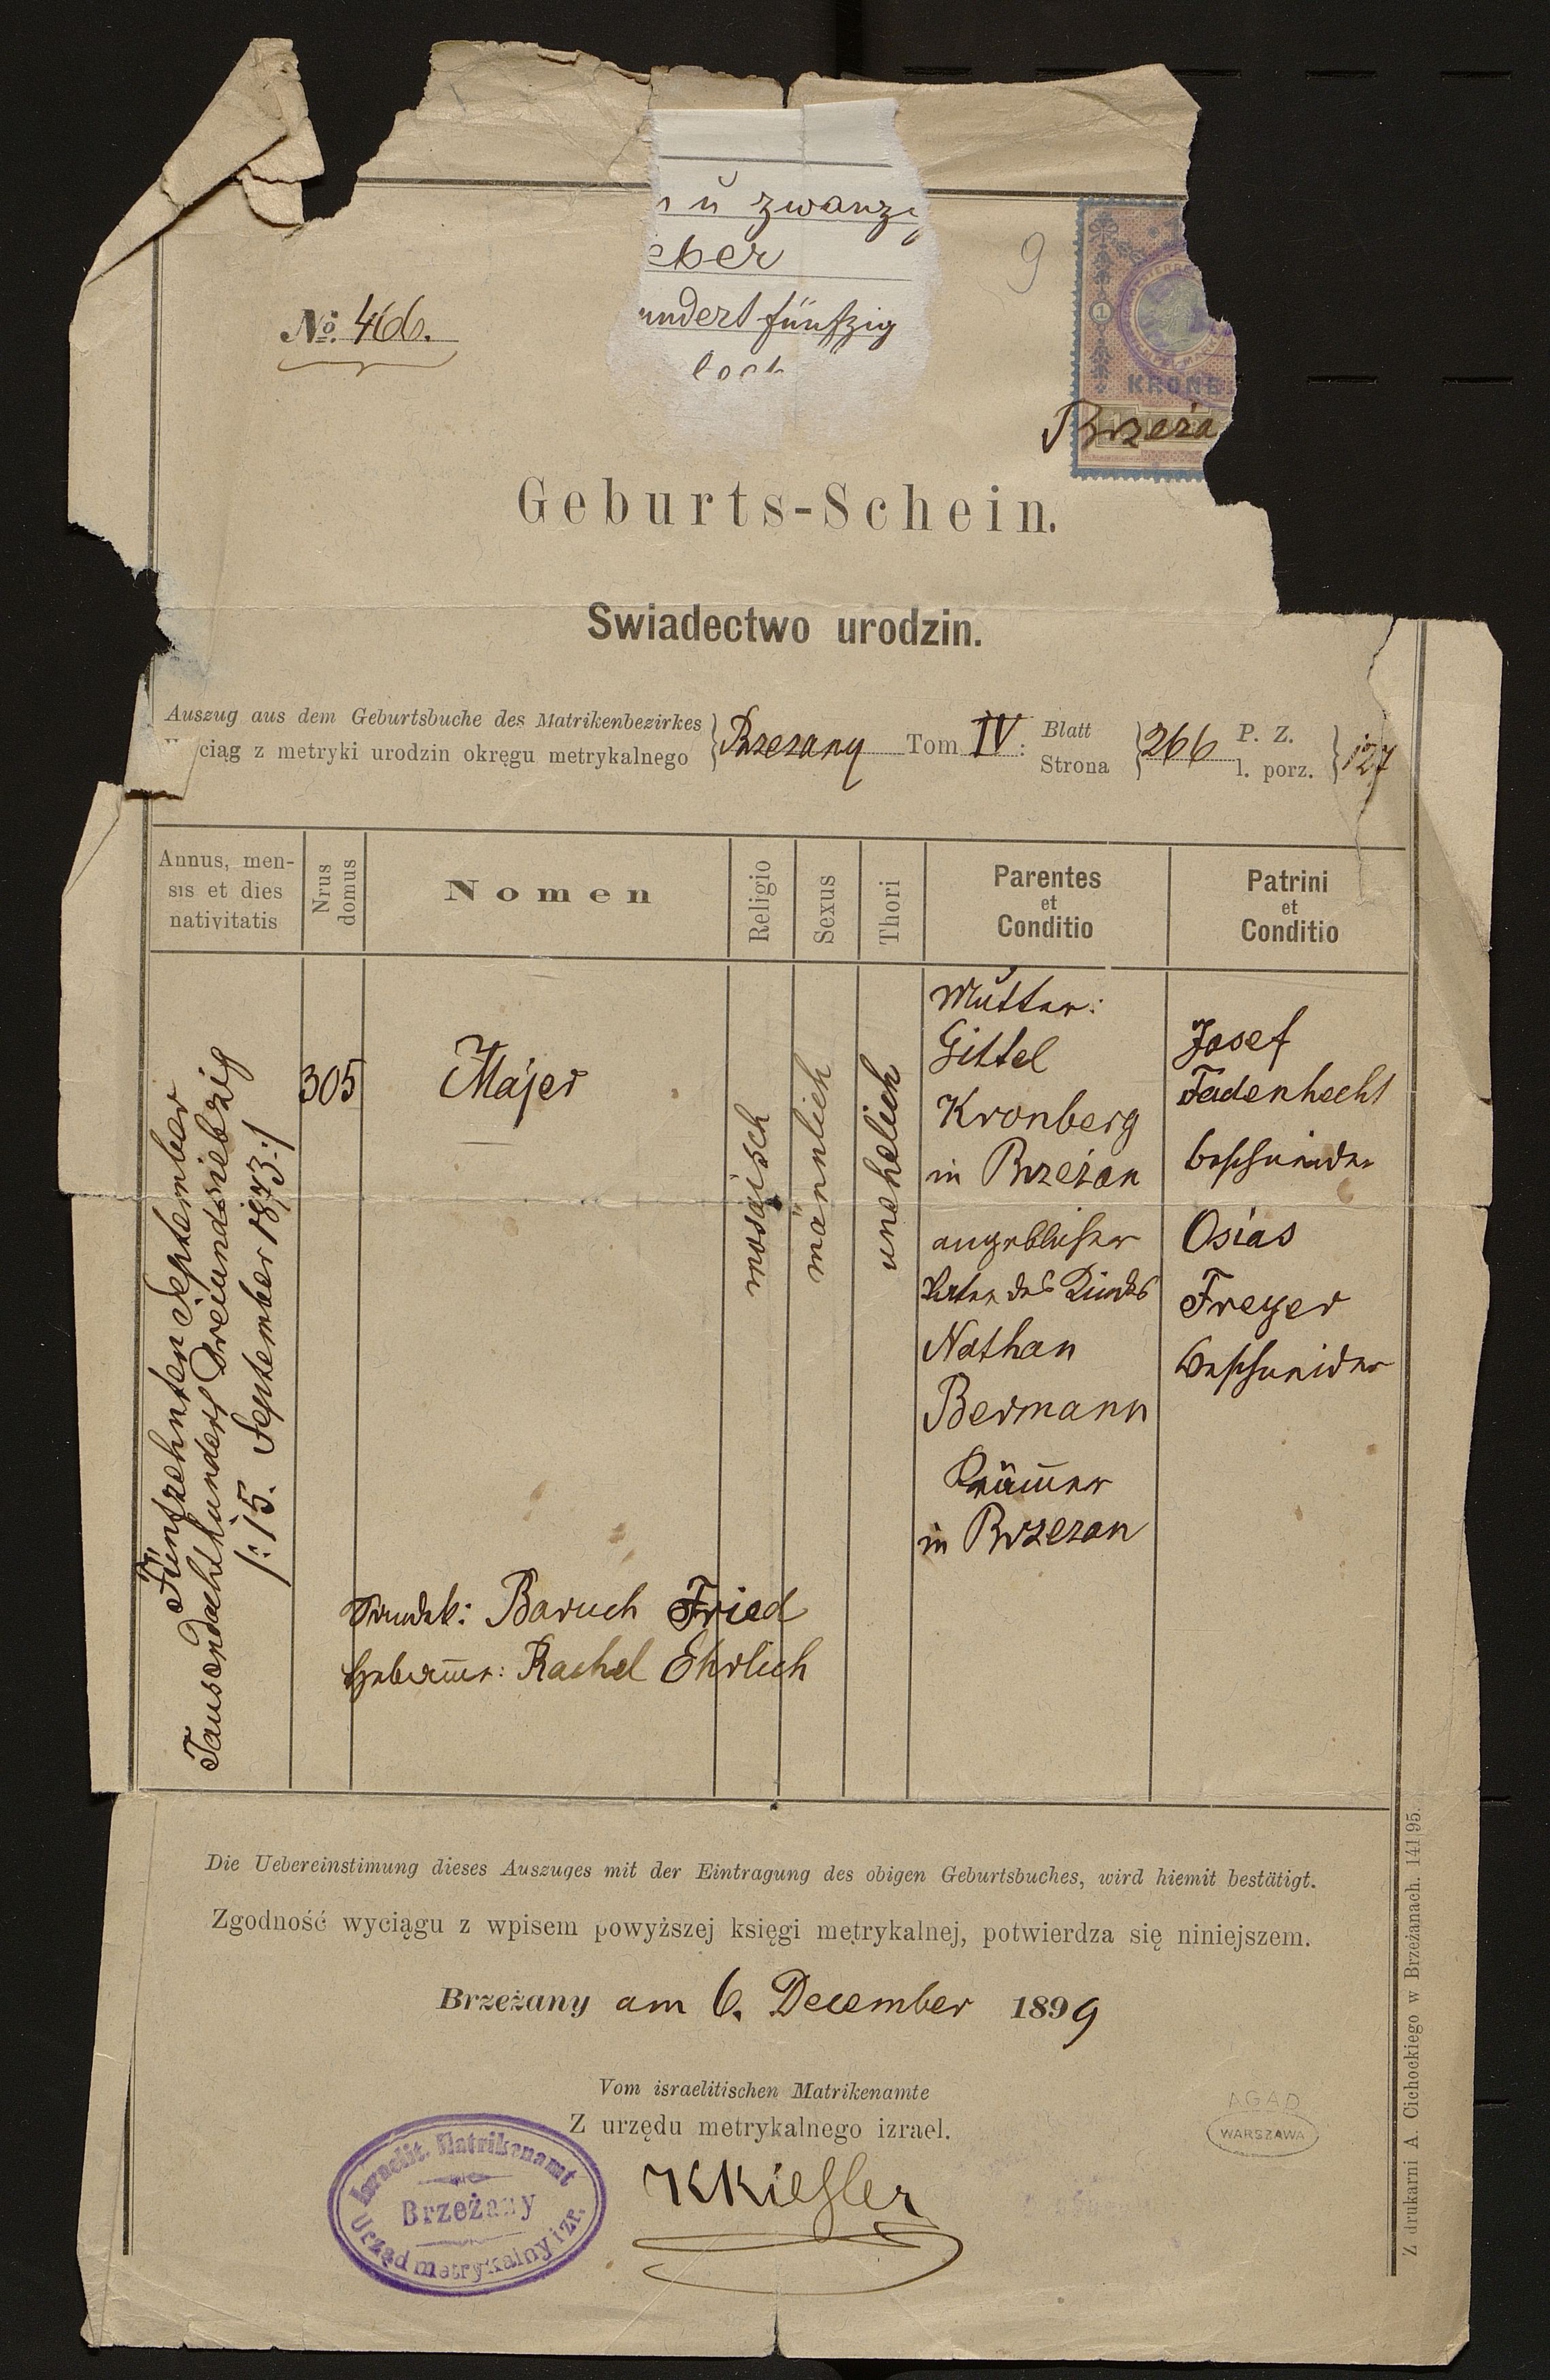 u zwanzi
eber
undert fünfzig
9
No. 466.
1
KRONE
Brzeża
Geburts-Schein.
Swiadectwo urodzin.
Auszug aus dem Geburtsbuche des Matrikenbezirkes
ciąg z metryki urodzin okręgu metrykalnego
Brzezany Tom IV: Blatt Strona 266 P. Z. l. porz. 127
Annus, men-
sis et dies
nativitatis
Nrus
domus
Nomen
Religio
Sexus
Thori
Parentes
et
Conditio
Patrini
et
Conditio
Fünfzehnten September
Tausendachthundert Dreiundsiebzig
/: 15. September 1873 :/
305
Majer
mosaisch
männlich
unehelich
Mutter:
Gittel
Kronberg
in Brzeżan
angeblicher
Vater des Kindes
Nathan
Bermann
Krämer
in Brzezan
Josef
Fadenhecht
Beschneider
Osias
Freyer
Beschneider
Sandek: Baruch Fried
Hebamme: Rachel Ehrlich
Die Uebereinstimung dieses Auszuges mit der Eintragung des obigen Geburtsbuches, wird hiemit bestätigt.
Zgodność wyciągu z wpisem powyższej księgi metrykalnej, potwierdza się niniejszem.
Brzeżany am 6. December 1899
Vom israelitischen Matrikenamte
Z urzędu metrykalnego izrael.
KKießler
Israelit. Matrikenamt
Brzeżany
Urząd metrykalny izr.
AGAD
WARSZAWA
Z drukarni A. Cichockiego w Brzeżanach. 141|95.